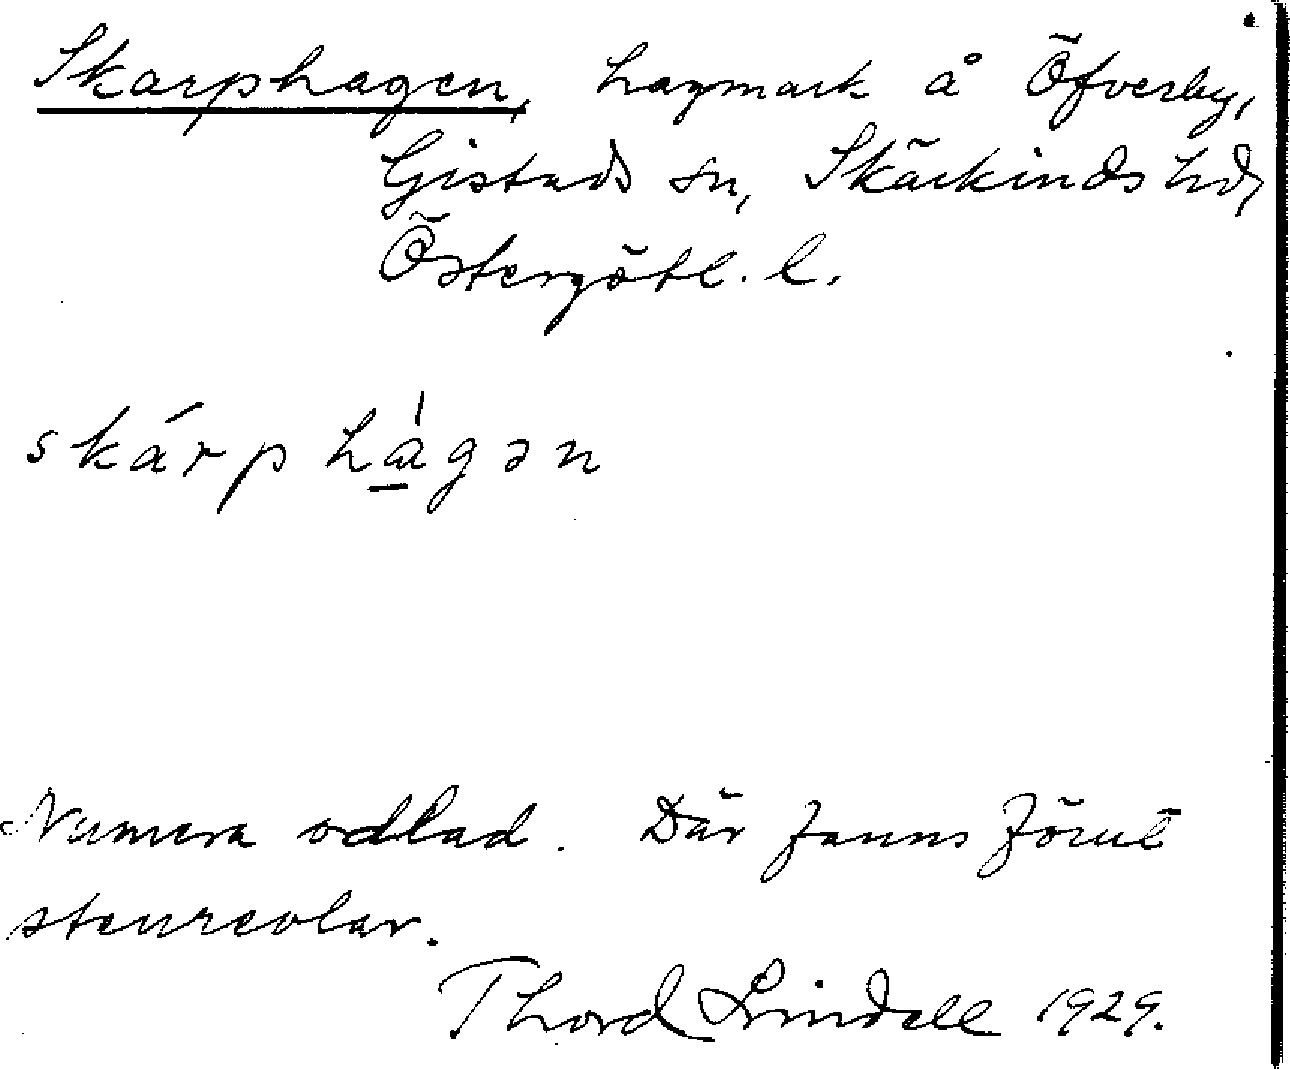 Skarphagen, hagmark å Öfverby,
Gistads sn, Skärkinds hd,
Östergötl. l.
skárphágən
Numera odlad. Där fanns förut
stenrevlar.
Thord Lindell 1929.